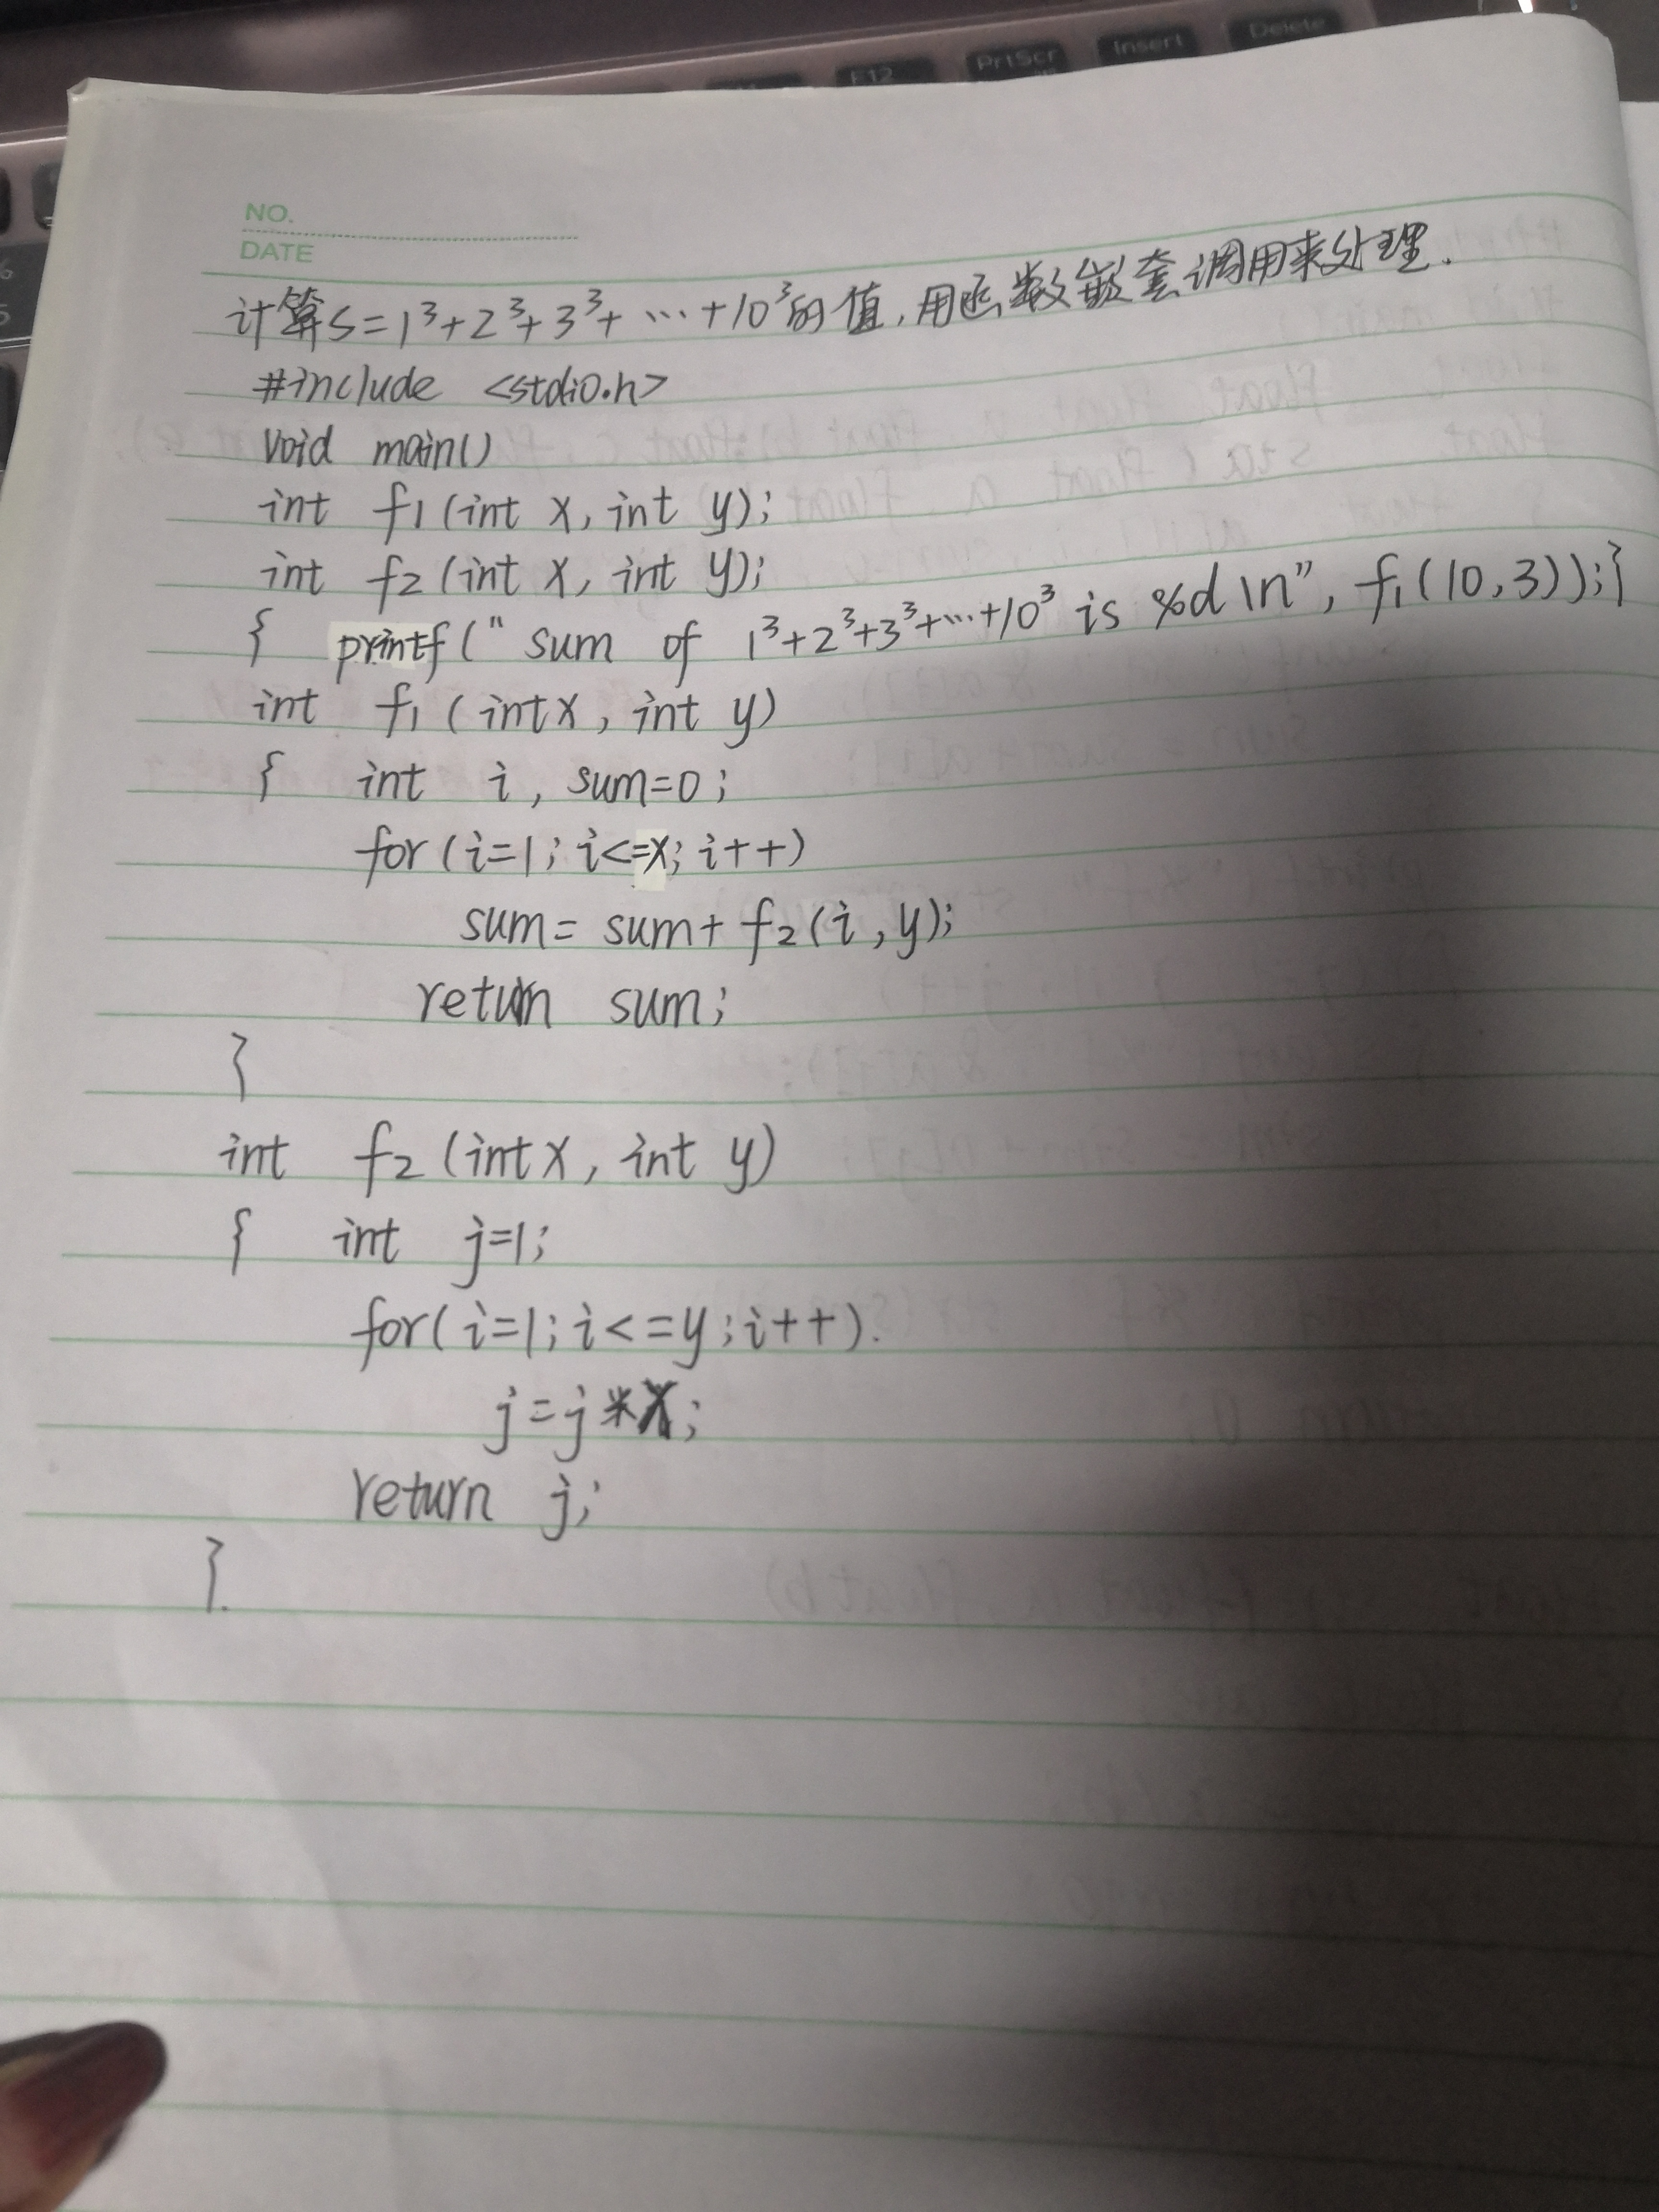 PrtScr
Insert
Delete
F12
NO.
DATE
计算S=1³+2³+3³+…+10³的值,用函数嵌套调用来处理.
#include <stdio.h>
void main()
int f1(int x, int y);
int f2(int x, int y);
{ printf(" sum of 1³+2³+3³+…+10³ is %d \n", f1(10,3));}
int f1(int x, int y)
{ int i, sum=0;
for(i=1; i<=x; i++)
sum= sum+ f2(i, y);
return sum;
}
int f2(int x, int y)
{ int j=1;
for(i=1; i<=y; i++).
j=j*x;
return j;
}.